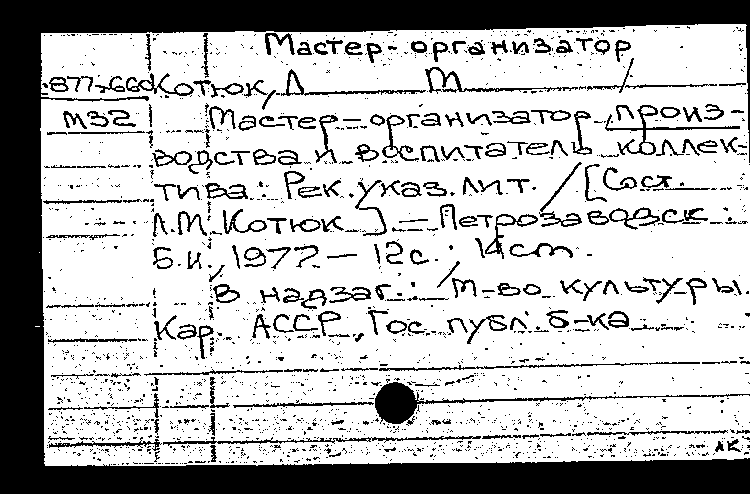 Мастер-организатор
877-660 Котюк, Л М
М32 Мастер-организатор произ-
водства и воспитатель коллек-
тива: Рек. указ. лит. / [Сост.
Л.М. Котюк]. — Петрозаводск:
Б.и., 1977. — 12с.; 14см.
В надзаг.: М-во культуры.
Кар. АССР, Гос публ. б-ка.
АК